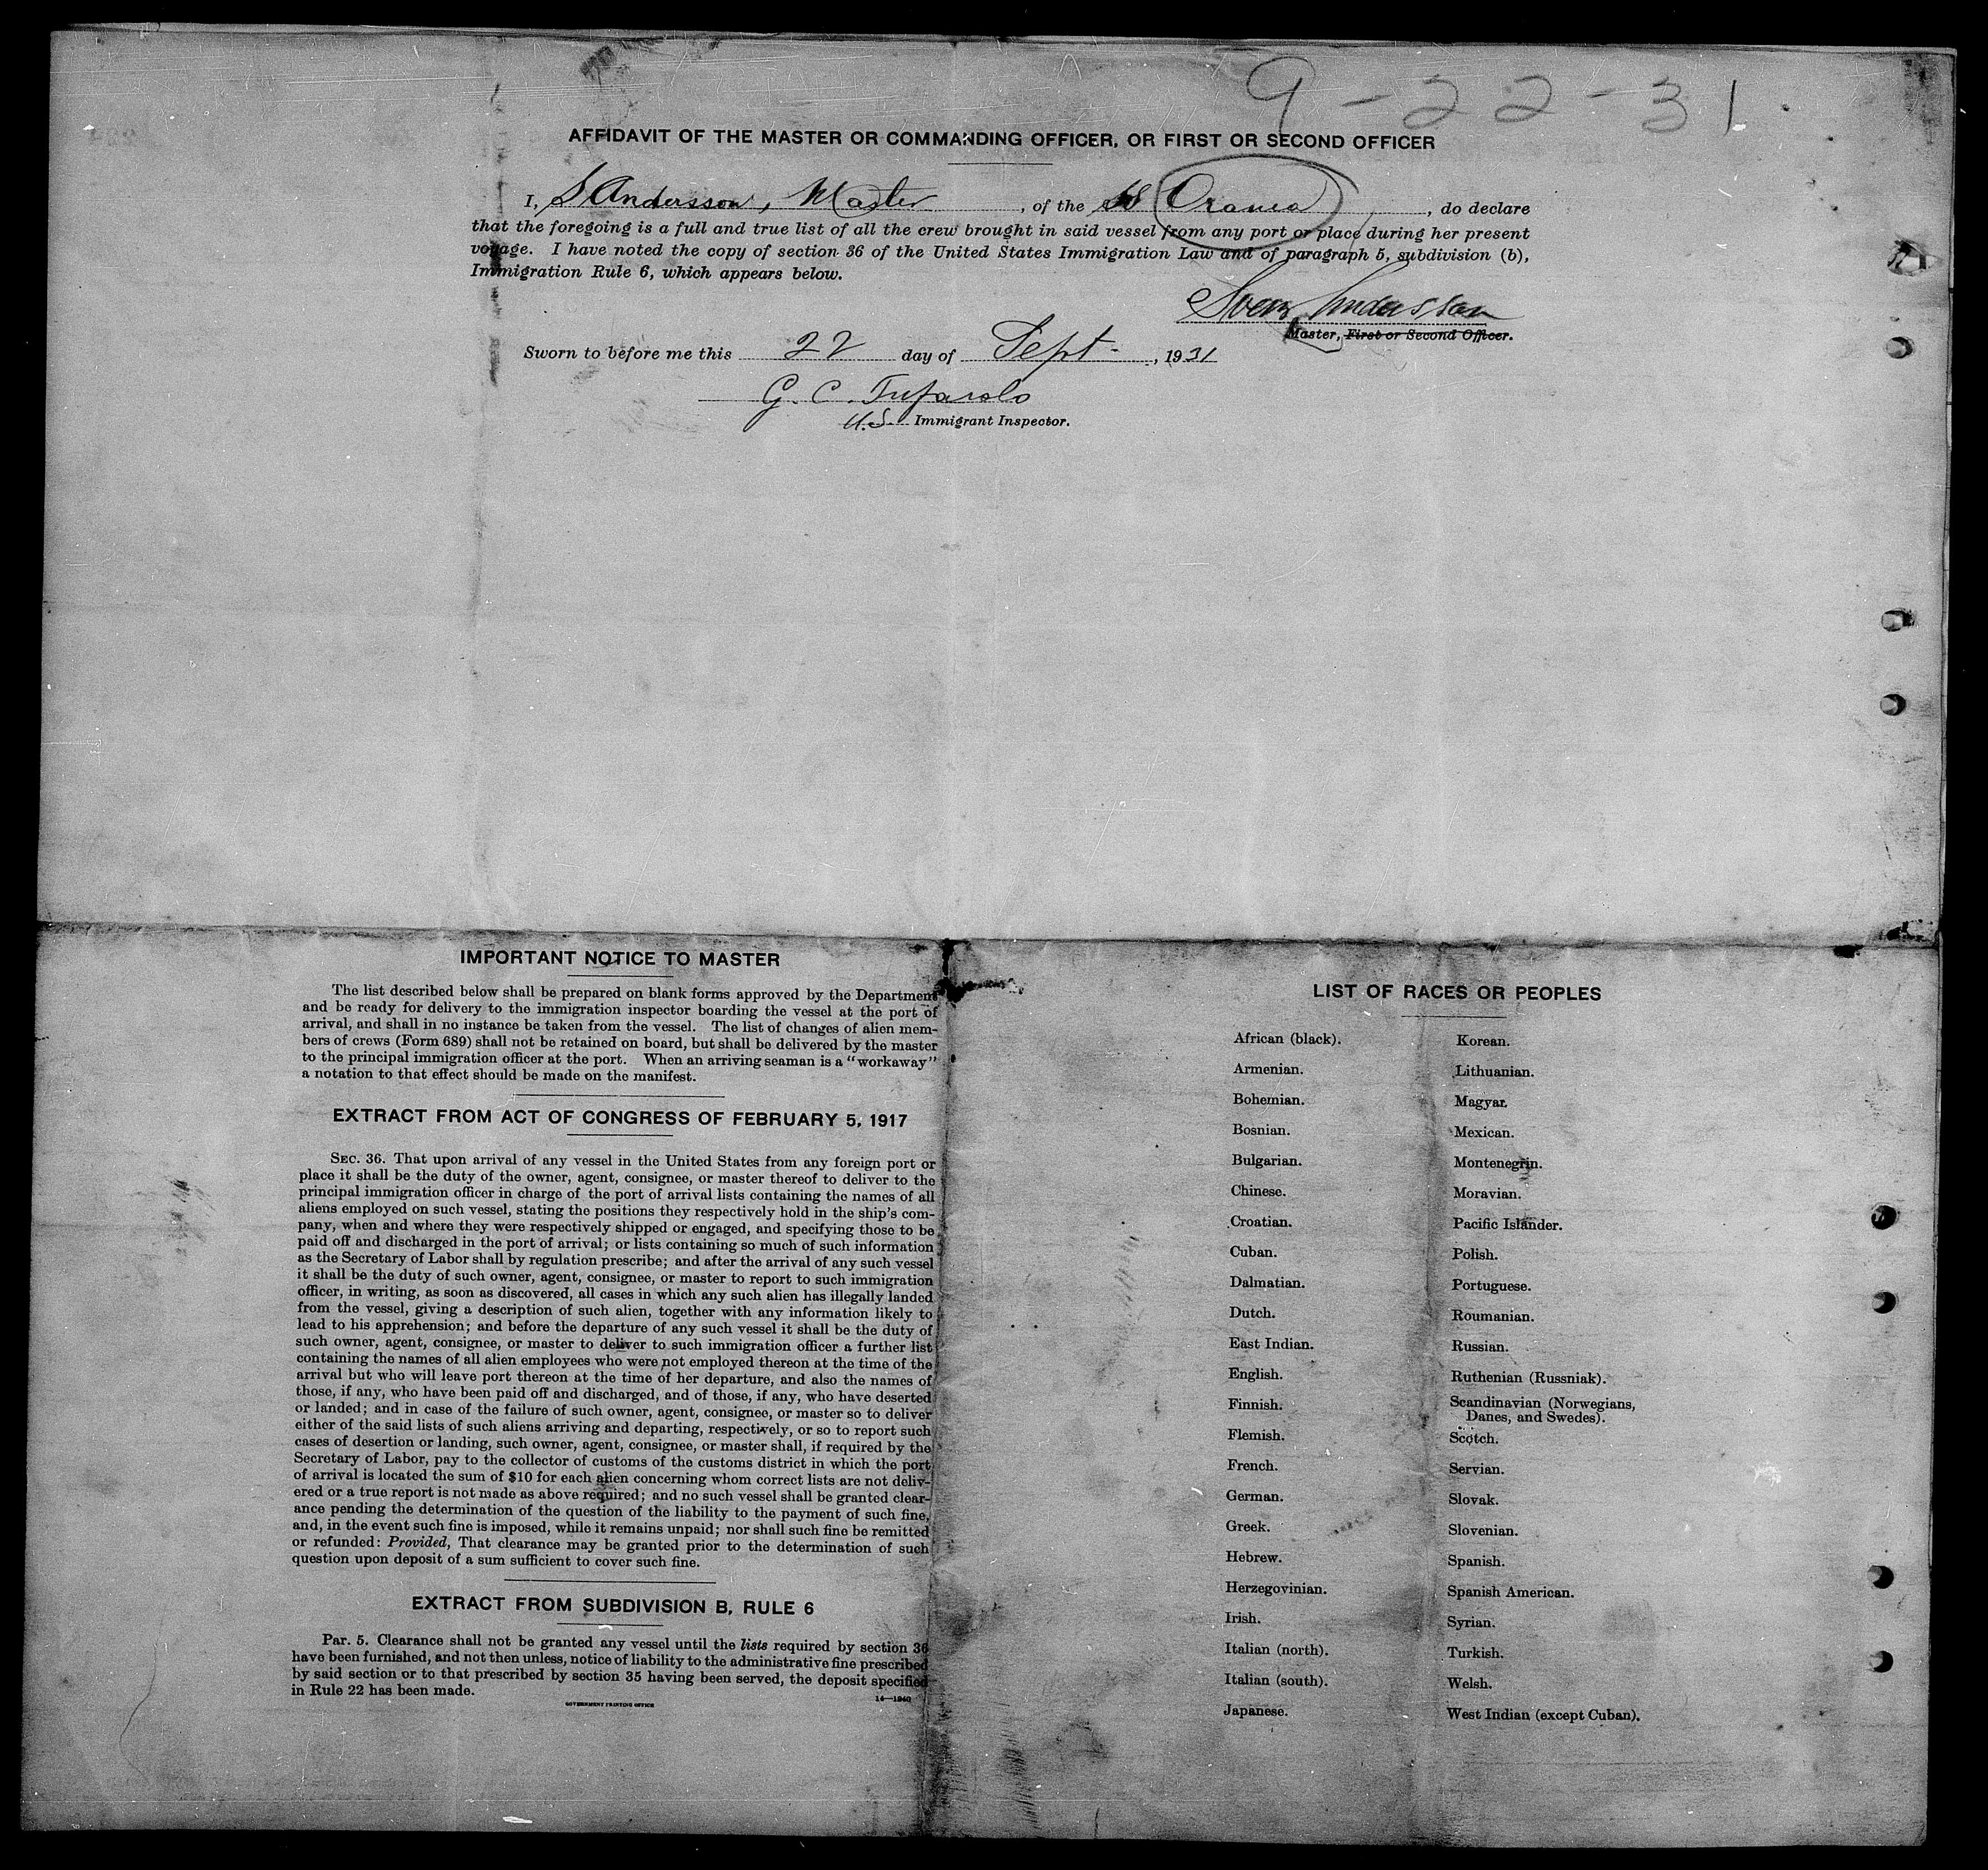 9-22-31
AFFIDAVIT OF THE MASTER OR COMMANDING OFFICER, OR FIRST OR SECOND OFFICER
I, S Andersson, Master, of the SS Orania, do declare
that the foregoing is a full and true list of all the crew brought in said vessel from any port or place during her present
voyage. I have noted the copy of section 36 of the United States Immigration Law and of paragraph 5, subdivision (b),
Immigration Rule 6, which appears below.
Sven Andersson
Master, First or Second Officer.
Sworn to before me this 22 day of Sept., 1931
G. C. Tufarolo
U.S. Immigrant Inspector.
IMPORTANT NOTICE TO MASTER
The list described below shall be prepared on blank forms approved by the Department
and be ready for delivery to the immigration inspector boarding the vessel at the port of
arrival, and shall in no instance be taken from the vessel. The list of changes of alien mem-
bers of crews (Form 689) shall not be retained on board, but shall be delivered by the master
to the principal immigration officer at the port. When an arriving seaman is a "workaway"
a notation to that effect should be made on the manifest.
EXTRACT FROM ACT OF CONGRESS OF FEBRUARY 5, 1917
SEC. 36. That upon arrival of any vessel in the United States from any foreign port or
place it shall be the duty of the owner, agent, consignee, or master thereof to deliver to the
principal immigration officer in charge of the port of arrival lists containing the names of all
aliens employed on such vessel, stating the positions they respectively hold in the ship's com-
pany, when and where they were respectively shipped or engaged, and specifying those to be
paid off and discharged in the port of arrival; or lists containing so much of such information
as the Secretary of Labor shall by regulation prescribe; and after the arrival of any such vessel
it shall be the duty of such owner, agent, consignee, or master to report to such immigration
officer, in writing, as soon as discovered, all cases in which any such alien has illegally landed
from the vessel, giving a description of such alien, together with any information likely to
lead to his apprehension; and before the departure of any such vessel it shall be the duty of
such owner, agent, consignee, or master to deliver to such immigration officer a further list
containing the names of all alien employees who were not employed thereon at the time of the
arrival but who will leave port thereon at the time of her departure, and also the names of
those, if any, who have been paid off and discharged, and of those, if any, who have deserted
or landed; and in case of the failure of such owner, agent, consignee, or master so to deliver
either of the said lists of such aliens arriving and departing, respectively, or so to report such
cases of desertion or landing, such owner, agent, consignee, or master shall, if required by the
Secretary of Labor, pay to the collector of customs of the customs district in which the port
of arrival is located the sum of $10 for each alien concerning whom correct lists are not deliv-
ered or a true report is not made as above required; and no such vessel shall be granted clear-
ance pending the determination of the question of the liability to the payment of such fine,
and, in the event such fine is imposed, while it remains unpaid; nor shall such fine be remitted
or refunded: Provided, That clearance may be granted prior to the determination of such
question upon deposit of a sum sufficient to cover such fine.
EXTRACT FROM SUBDIVISION B, RULE 6
Par. 5. Clearance shall not be granted any vessel until the lists required by section 36
have been furnished, and not then unless, notice of liability to the administrative fine prescribed
by said section or to that prescribed by section 35 having been served, the deposit specified
in Rule 22 has been made.
GOVERNMENT PRINTING OFFICE
14—1240
LIST OF RACES OR PEOPLES
African (black).
Armenian.
Bohemian.
Bosnian.
Bulgarian.
Chinese.
Croatian.
Cuban.
Dalmatian.
Dutch.
East Indian.
English.
Finnish.
Flemish.
French.
German.
Greek.
Hebrew.
Herzegovinian.
Irish.
Italian (north).
Italian (south).
Japanese.
Korean.
Lithuanian.
Magyar.
Mexican.
Montenegrin.
Moravian.
Pacific Islander.
Polish.
Portuguese.
Roumanian.
Russian.
Ruthenian (Russniak).
Scandinavian (Norwegians,
Danes, and Swedes).
Scotch.
Servian.
Slovak.
Slovenian.
Spanish.
Spanish American.
Syrian.
Turkish.
Welsh.
West Indian (except Cuban).